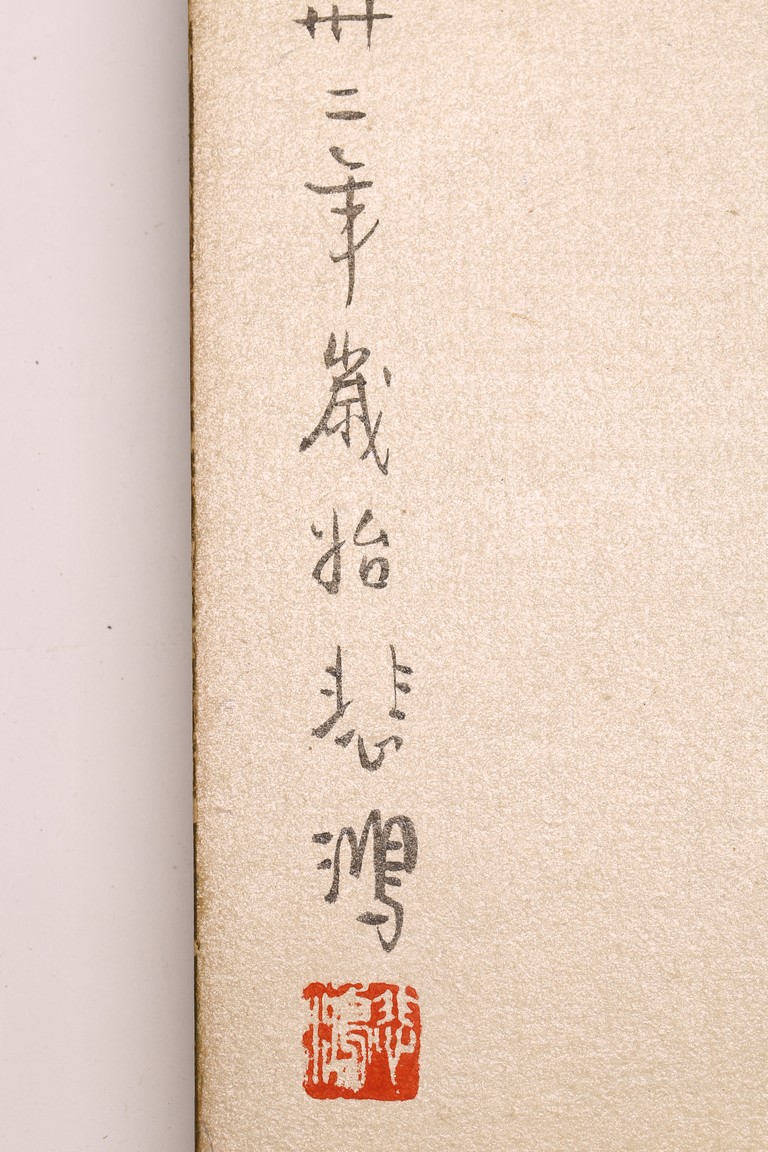 卅二年歲始悲鴻
悲鴻